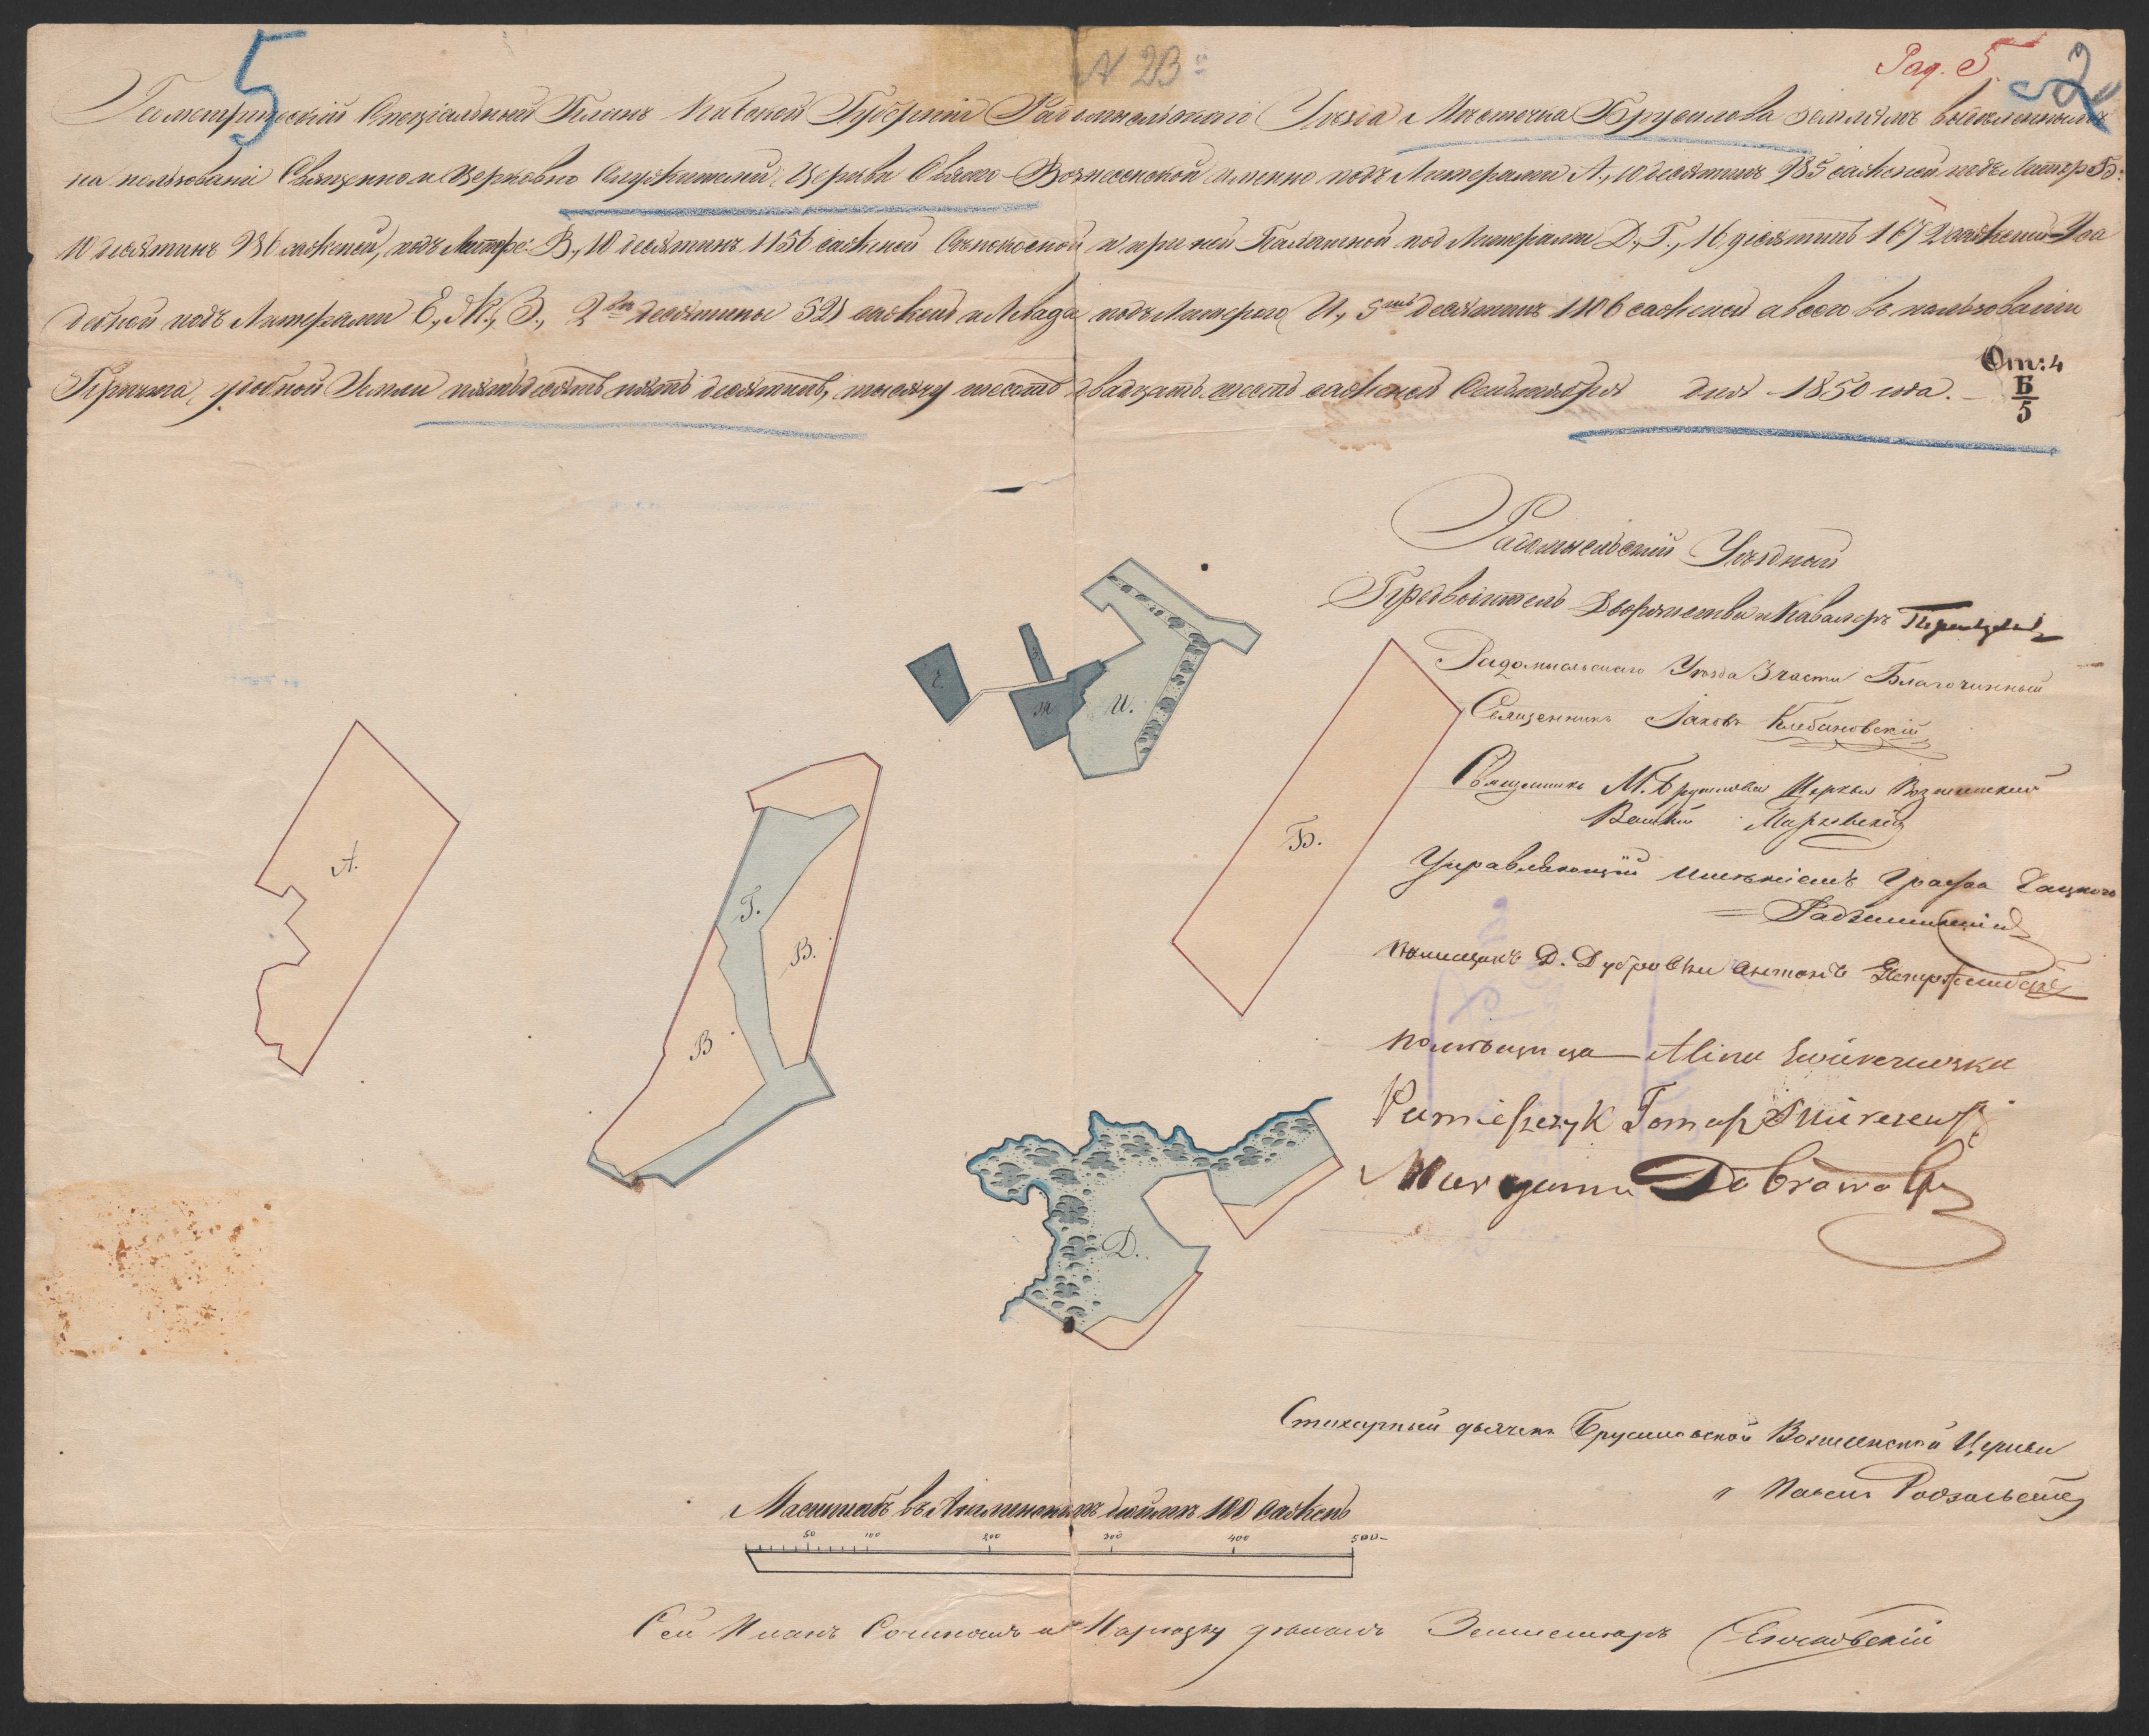 5
N 23
Рад. 5.
2
Геометрический Специальный Планъ Киевской Губерніи Радомысльскаго Уѣзда Мѣстечка Брусилова землямъ выдѣленнымъ
на пользованіи Священно и Церковно Служителей Церкви Свято-Вознесенской именно подъ Литерами А., 10 десятинъ 985 саженей подъ Литер: Б.
10 десятинъ 986 саженей, подъ Литере: В., 10 десятинъ 1156 саженей Сѣнокосной и при ней Пахатной под Литерами Д., Г., 16 десятинъ 1672 саженей Уса
дебной подъ Литерами Е., Ж., З., 2 десятины 521 сажень и Левада подъ Литерою И., 5 десятинъ 1106 саженей а всего въ пользованіи
Причта удобной Земли пятьдесятъ пять десятинъ, тысячу шестьсотъ двадцать шесть саженей Сентября дня 1850 года.
Оп: 4
Б
5
Радомысльскій Уѣздный
Предводитель Дворянства и Кавалеръ
Радомысльскаго Уѣзда 3 части Благочинный
Священникъ Іаковъ Клебановскій
Священникъ М. Брусилова Церкви Вознесенской
Марковскій
Управляющій имѣніемъ Графа Чацкого
помещикъ Д. Дубровки Антонъ
помѣщица Alina
Pomieszczyk Tomasz
Dabrowsky
Е.
З.
Ж.
И.
А.
Б.
Г.
В.
В
Д.
Стихарный дьячекъ Брусиловской Вознесенской Церкви
Масштабъ въ Англинскомъ дюймѣ 100 сажень
50 100 200 300 400 500
Сей Планъ Сочинялъ и Нарезку дѣлалъ Землемѣръ